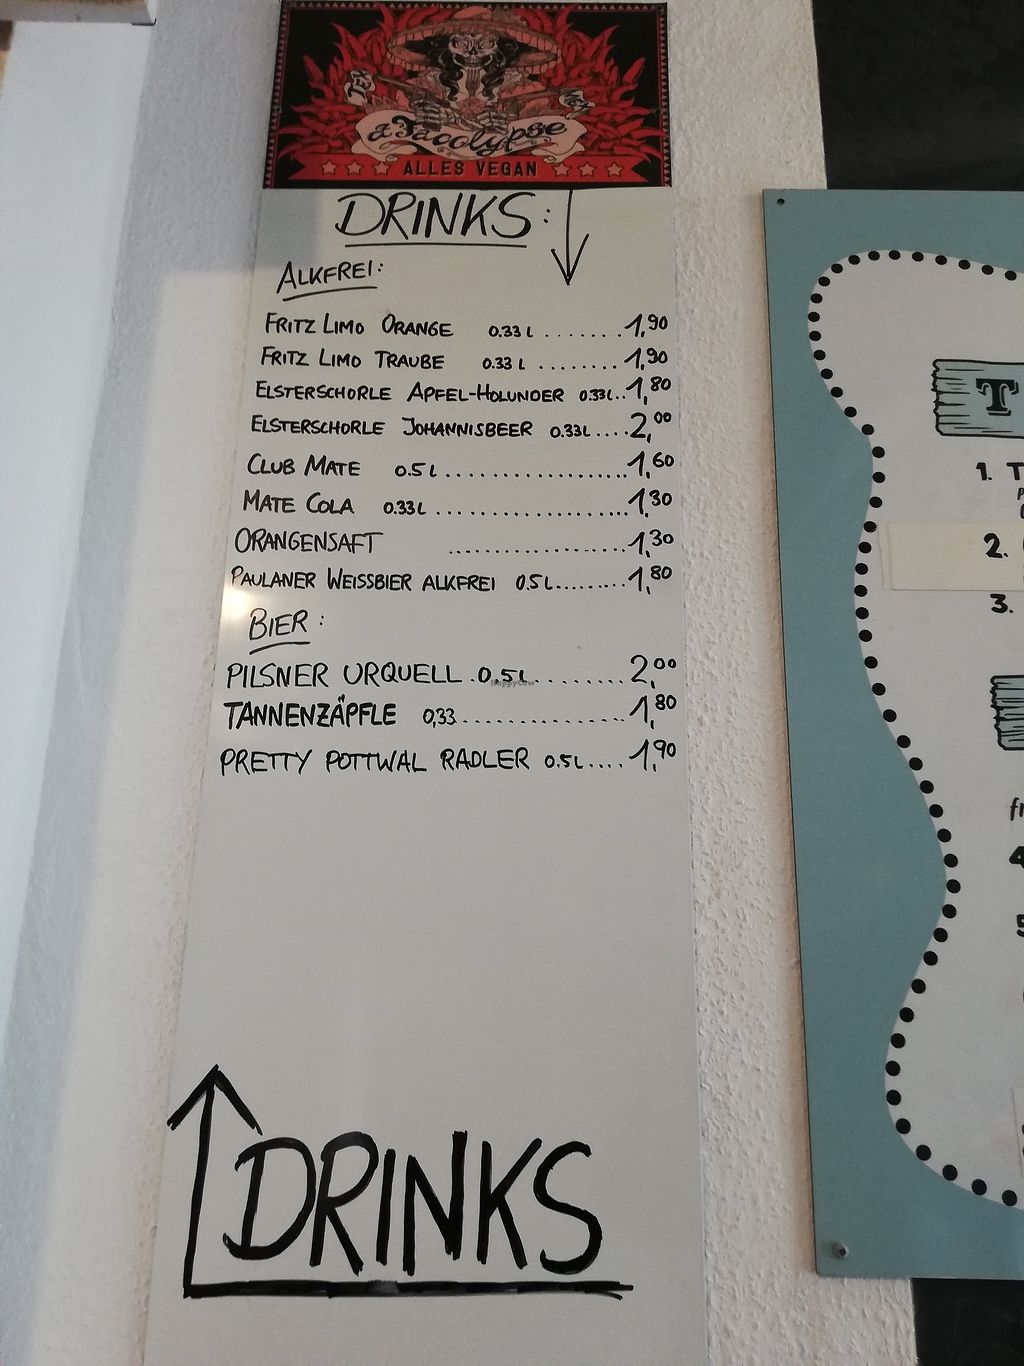 TEX
TEX
aTacolypse
ALLES VEGAN
DRINKS:
ALKFREI:
FRITZ LIMO ORANGE 0.33 L ....... 1,90
FRITZ LIMO TRAUBE 0.33 L ........ 1,90
ELSTERSCHORLE APFEL-HOLUNDER 0.33L.. 1,80
ELSTERSCHORLE JOHANNISBEER 0.33L.... 2,00
CLUB MATE 0.5 L................... 1,60
MATE COLA 0.33 L .................. 1,30
ORANGENSAFT .................. 1,30
PAULANER WEISSBIER ALKFREI 0.5 L......... 1,80
BIER:
PILSNER URQUELL .0,5L......... 2,00
TANNENZÄPFLE 0,33................. 1,80
PRETTY POTTWAL RADLER 0.5L.... 1,90
HappyCow
DRINKS
T
1. T
2.
3.
fr
4
5